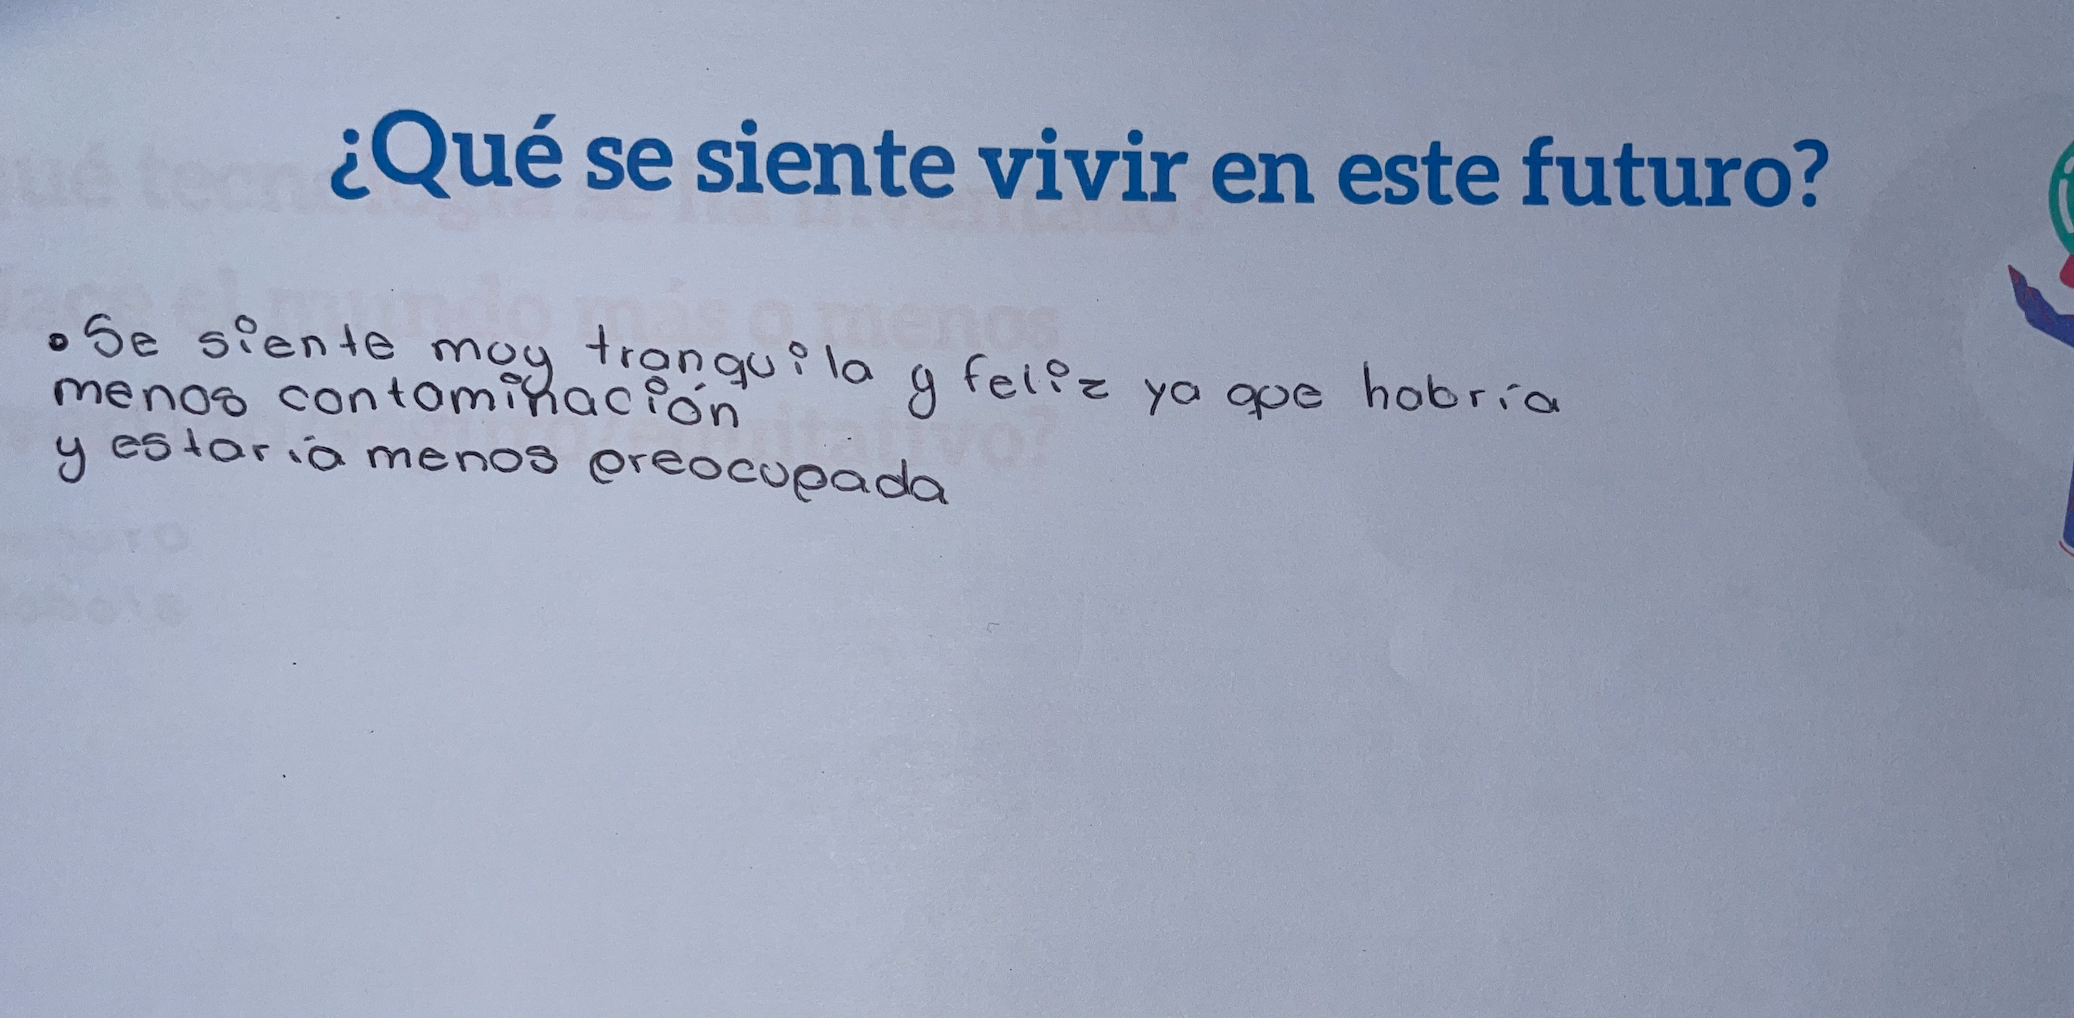 ¿Qué se siente vivir en este futuro?
• Se siente muy tranquila y feliz ya que habría
menos contaminación
y estaría menos preocupada